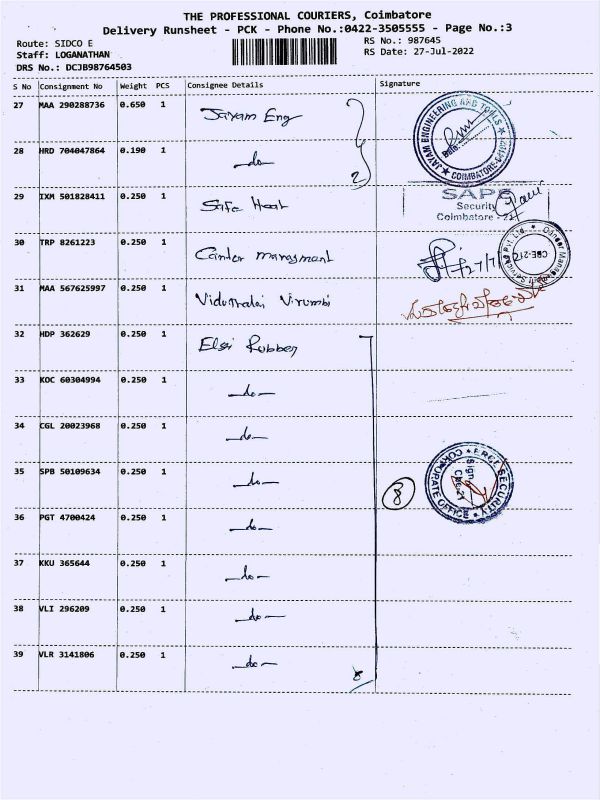 THE PROFESSIONAL COURIERS, Coimbatore
Delivery Runsheet - PCK - Phone No.:0422-3505555 - Page No.:3
Route: SIDCO E
Staff: LOGANATHAN
DRS No.: DCJB98764503
RS No.: 987645
RS Date: 27-Jul-2022
S No Consignment No Weight PCS Consignee Details Signature
27 MAA 290288736 0.650 1 Jayam Eng
JAYAM ENGINEERING AND TOOLS
COIMBATORE-641021
28 HRD 704047864 0.190 1 -do-
2
29 IXM 501828411 0.250 1 Safe Heat
SAPS
Security
Coimbatore - 21
30 TRP 8261223 0.250 1
CBE-21
31 MAA 567625997 0.250 1 Viduthalai Virumbi
32 HDP 362629 0.250 1 Elgi Rubber
33 KOC 60304994 0.250 1 -do-
34 CGL 20023968 0.250 1 -do-
35 SPB 50109634 0.250 1 -do-
8
SECURITY
CORPORATE OFFICE
Sign
Cbe.21
36 PGT 4700424 0.250 1 -do-
37 KKU 365644 0.250 1 -do-
38 VLI 296209 0.250 1 -do-
39 VLR 3141806 0.250 1 -do-
8